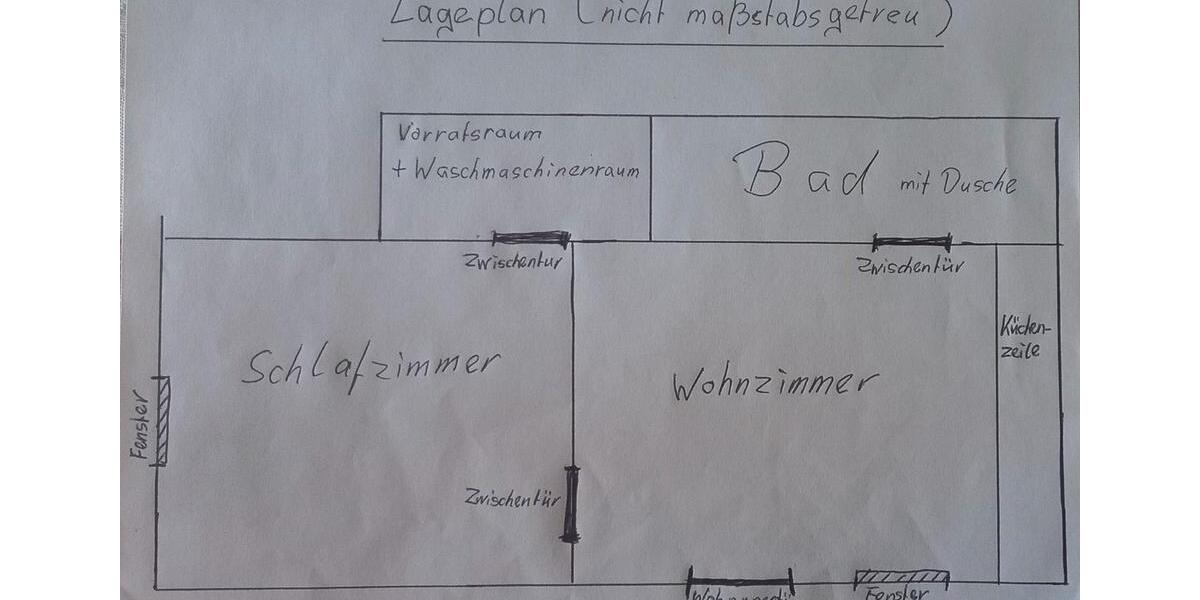 Lageplan (nicht maßstabsgetreu)
Vorratsraum
+ Waschmaschinenraum
Bad mit Dusche
Zwischentür
Zwischentür
Küchen-
zeile
Schlafzimmer
Wohnzimmer
Fenster
Zwischentür
Fenster